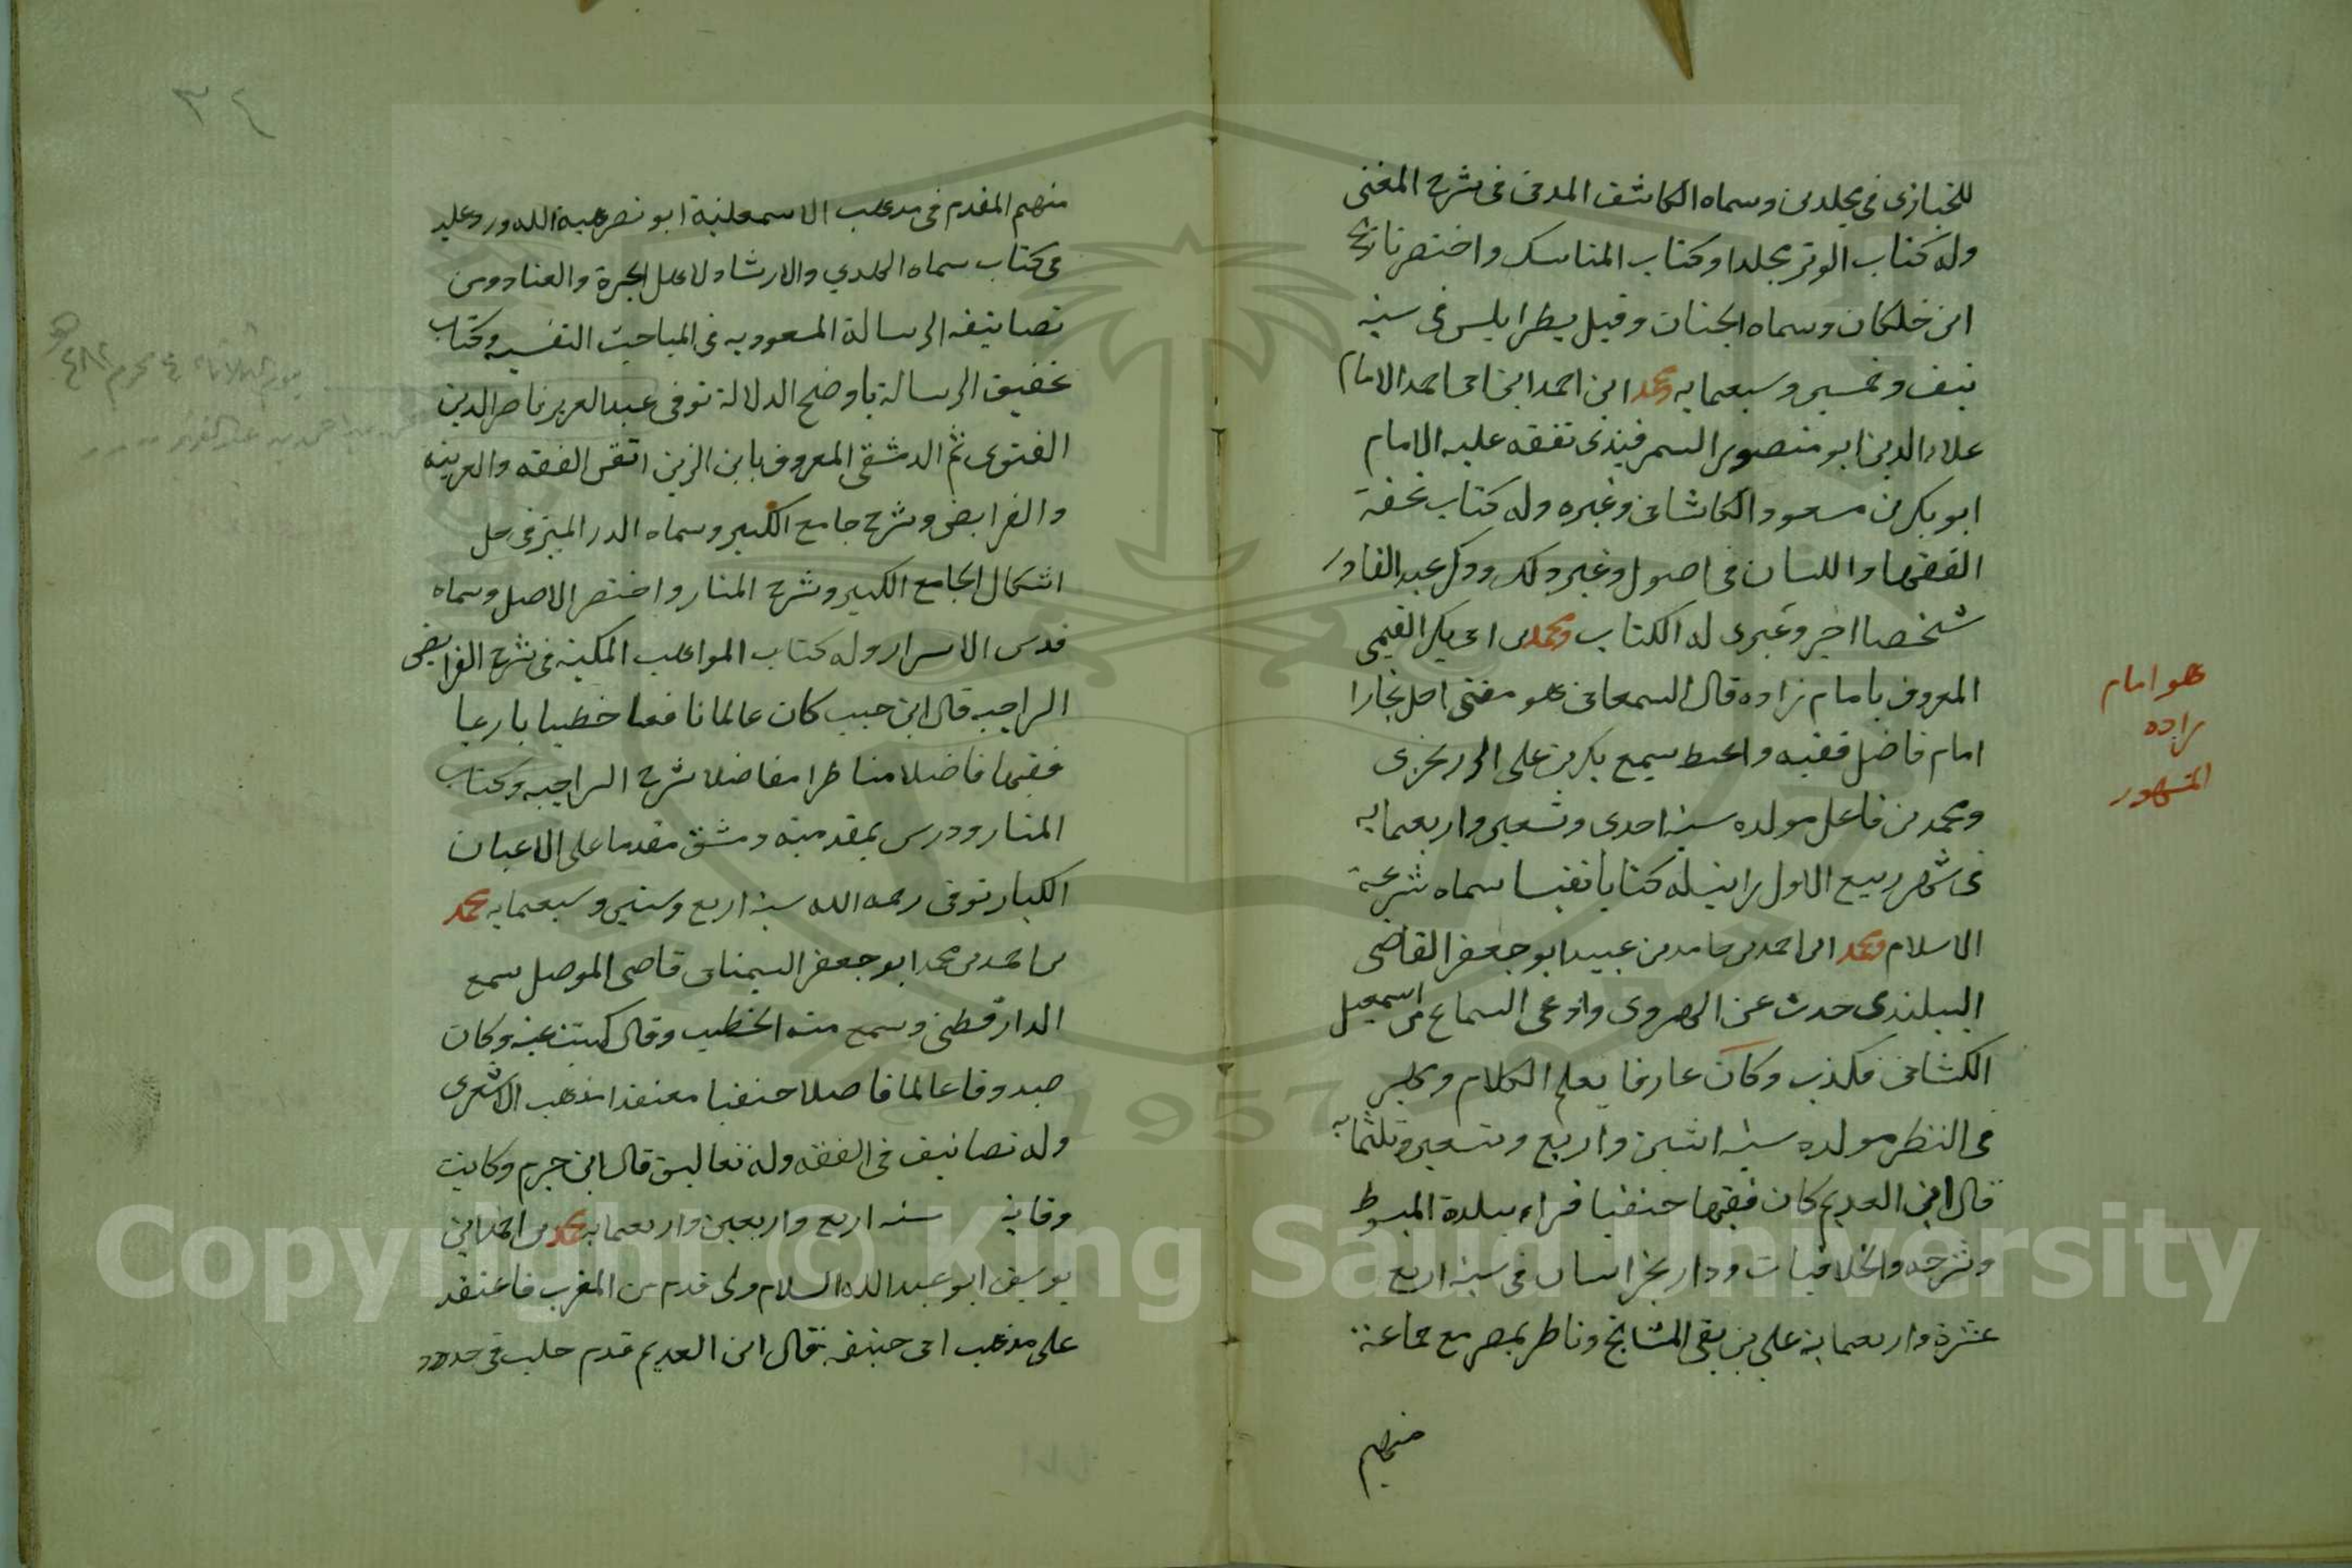 للخبازى فى مجلدين وسماه الكاشف المدفى فى شرح المغنى
وله كتاب الوتر مجلدا وكتاب المناسك واختصر تاريخ
ابن خلكان وسماه الجنان وقيل بطرابلس فى سنة
نيف وخمسين وسبعمايه ومحمد ابن احمد ابن ابى احمد الامام
علاء الدين ابو منصور السمرقندى تفقه عليه الامام
ابو بكر بن مسعود الكاشانى وغيره وله كتاب تحفة
الفقها واللسان فى اصول وغير ذلك وذكر عبد القادر
شخصا اخر وعزى له الكتاب ومحمد بن ابى بكر القيمى
المعروف بامام زاده قال السمعانى هو مفتى اهل بخارا
امام فاضل فقيه واعظ سمع بكر بن على الزرنجرى
ومحمد بن فاعل مولده سنة احدى وتسعين واربعمايه
فى شهر ربيع الاول رايت له كتابا نفيسا سماه شرعة
الاسلام ومحمد ابن احمد بن حامد بن عبيد ابو جعفر القاضى
البيلندى حدث عن الهروى وادعى السماع من اسمعيل
الكشانى فكذب وكان عارفا بعلم الكلام ومجلس
فى النظر مولده سنة اثنين واربع وتسعين وثلثمايه
قال ابن العديم كان فقيها حنفيا قراء ببلدة المبسوط
وشرحه والخلافيات ودار بخراسان فى سنة اربع
عشرة واربعماية على من بقى المشايخ وناظر بمصر مع جماعة
منهم
هو امام
زاده
المشهور
٣٤
منهم المقدم فى مذهب الاسمعلية ابو نصر هبة الله ورد عليه
فى كتاب سماه الهدي والارشاد لاهل الحيرة والعناد ومن
تصانيفه الرسالة المسعوديه فى المباحث النفسيه وكتاب
تحقيق الرسالة باوضح الدلالة توفى عبد العزيز ناصر الدين
القنوى ثم الدمشقى المعروف بابن الزين اتقن الفقه والعربية
والفرايض وشرح جامع الكبير وسماه الدر المنير فى حل
اشكال الجامع الكبير وشرح المنار واختصر الاصل وسماه
قدس الاسرار وله كتاب المواهب المكية فى شرح الفرايض
السراجيه قال ابن حبيب كان عالما نافعا خطيبا بارعا
فقيها فاضلا مناظرا مفاضلا شرح السراجيه وكتاب
المنار ودرس بمقدمية دمشق مقدما على الاعيان
الكبار توفى رحمه الله سنة اربع وستين وسبعمايه محمد
بن احمد بن محمد ابو جعفر السمنانى قاضى الموصل سمع
الدارقطنى وسمع منه الخطيب وقال كتبت عنه وكان
صدوقا عالما فاضلا حنفيا معتقدا مذهب الاشعرى
وله تصانيف فى الفقه وله تعاليق قال ابن حزم وكانت
وفاته سنه اربع واربعين واربعمايه محمد بن احمد ابن
يوسف ابو عبد الله السلاوى قدم من المغرب فاعتقد
على مذهب ابى حنيفه قال ابن العديم قدم حلب فى حدود
Copyright © King Saud University
1957